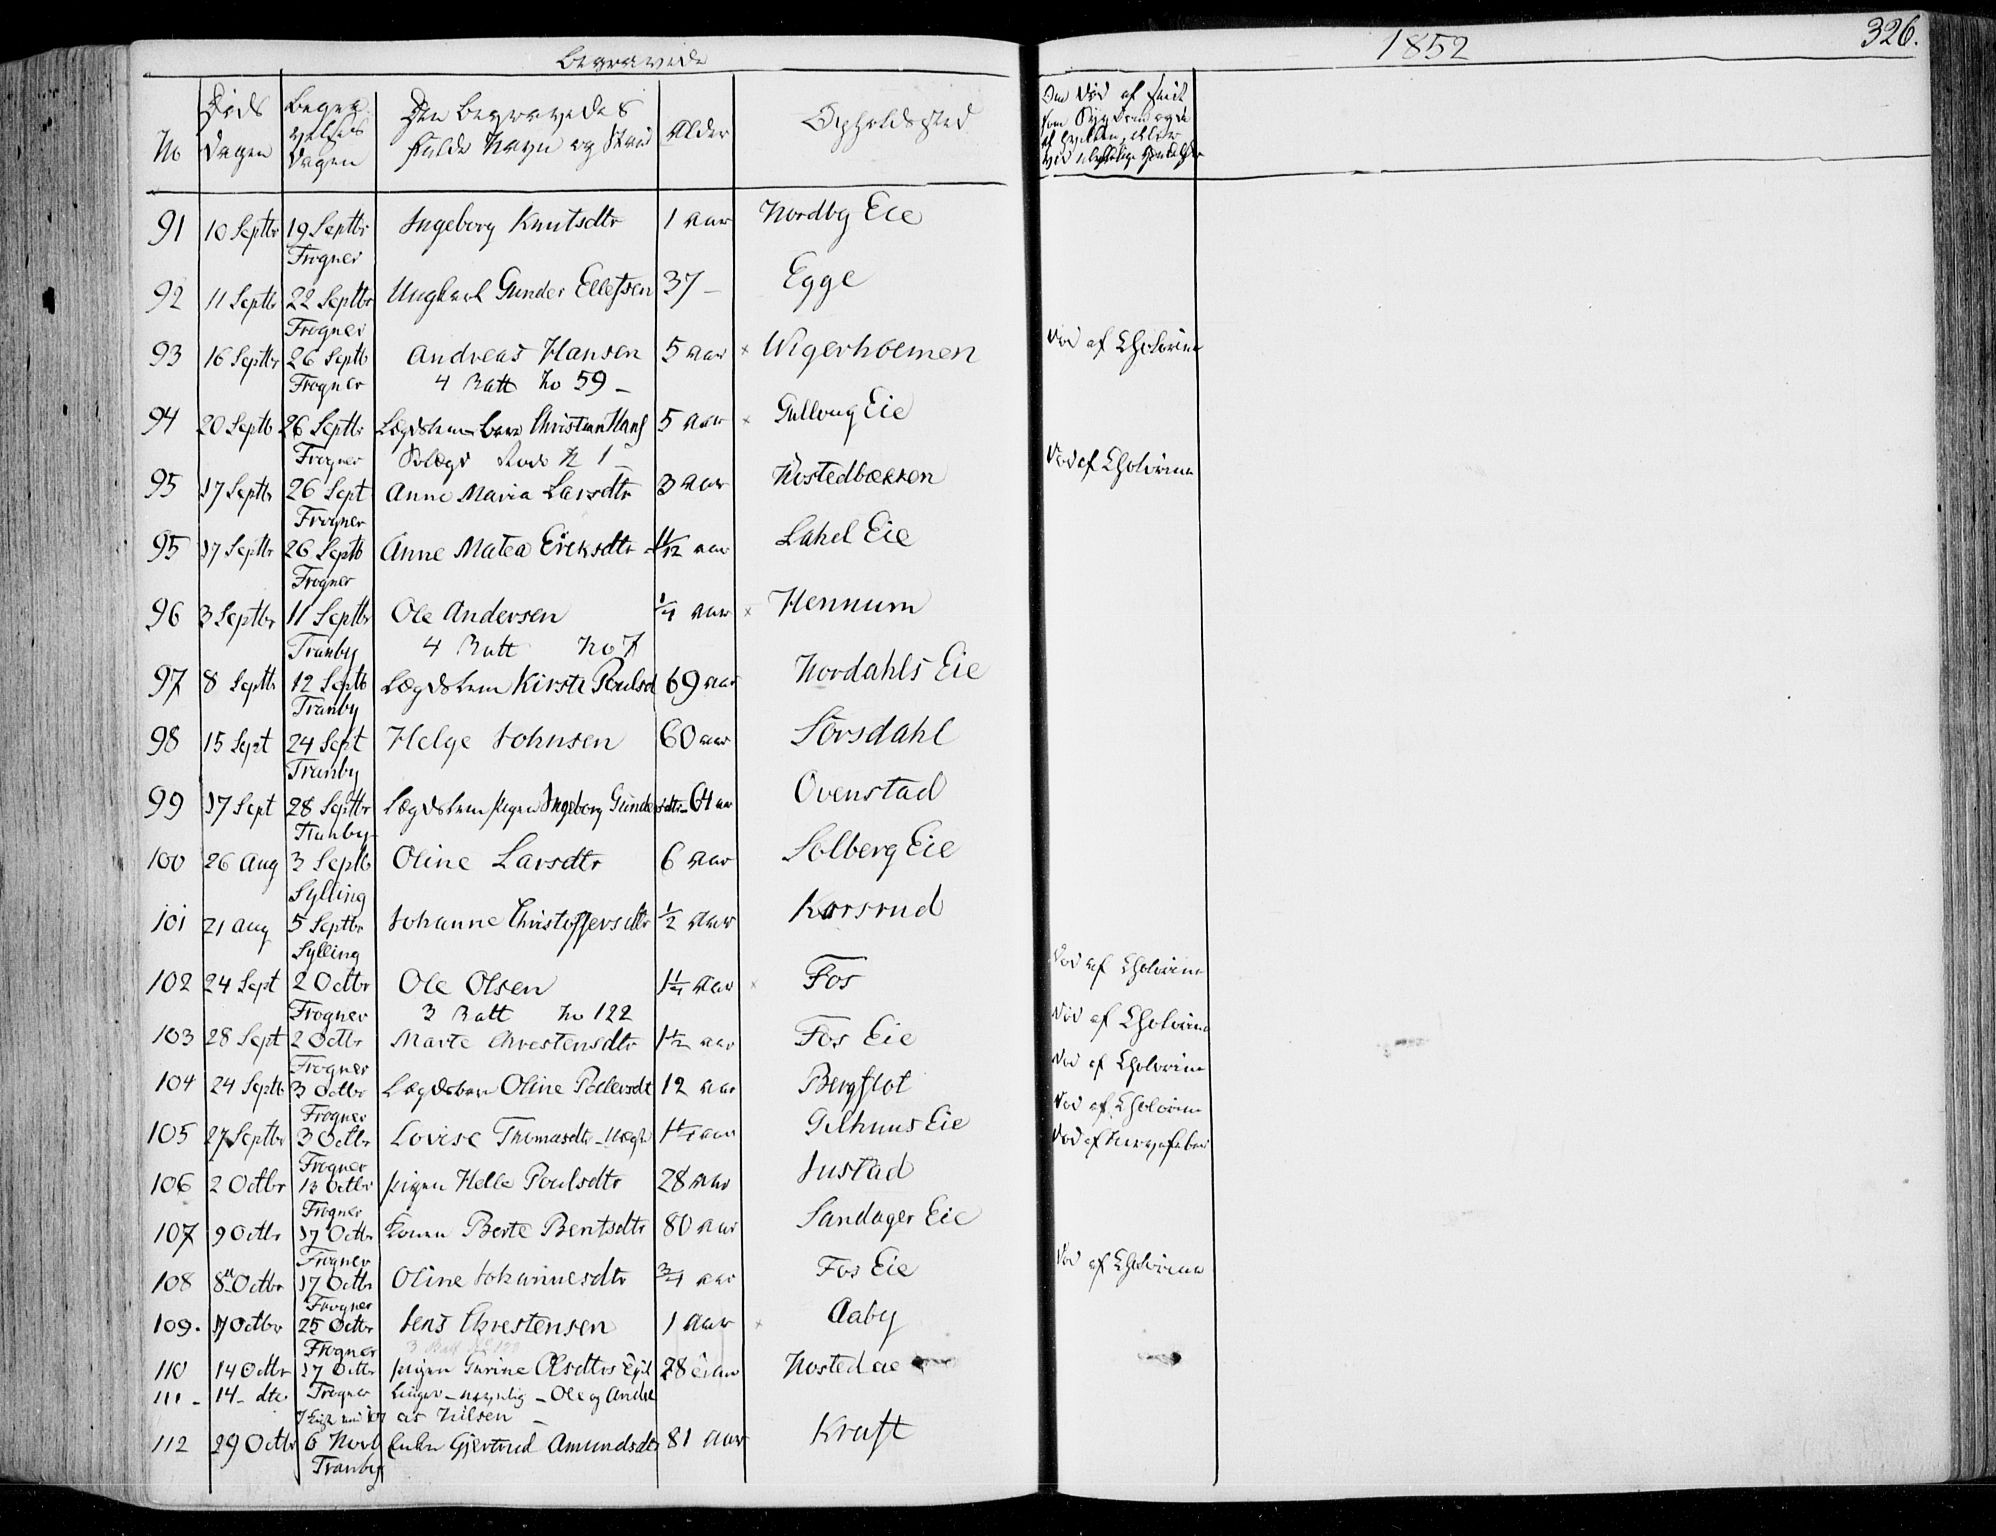 Begravede
1852
326.
No
Døds Dagen
Begravelses Dagen
Den Begravedes fulde Navn og Stand
Alder
Opholdssted
91 10 Septbr 19 Septbr Ingeborg Knutsdtr 1 aar Nordby Eie
Frogner
92 11 Septbr 22 Septbr Ungkarl Gunder Ellefsen 37 – Egge
Frogner
93 16 Septbr 26 Septb Andreas Hansen 5 aar × Wigerholmen Død af Cholerine
Frogner 4 Batt No 59 –
94 20 Septb 26 Septbr Lægdslem Barn Christian Hans 5 aar × Gullaug Eie
Frogner No 1 –
95 17 Septbr 26 Sept Anne Maria Larsdtr 3 aar Nøstedbækken Død af Cholerine
Frogner
95 17 Septbr 26 Septb Anne Matea Ericksdtr 1/12 aar Lahel Eie
Frogner
96 3 Septbr 11 Septbr Ole Andersen 1/4 aar × Hennum
Tranby 4 Batt No 7
97 8 Septbr 12 Septb Lægdslem Kirsti Poulsd 69 aar Nordahls Eie
Tranby
98 15 Sept 24 Sept Helge Johnsen 60 aar Sørsdahl
Tranby
99 17 Sept 28 Septbr Lægdslem Pigen Ingeborg Gundersdtr 64 aar Ovenstad
Tranby
100 26 Aug 3 Septb Oline Larsdtr 6 aar Solberg Eie
Sylling
101 21 Aug 5 Septbr Johanne Christoffersdtr 1/2 aar Korsrud
Sylling
102 24 Sept 2 Octbr Ole Olsen 1 1/4 aar × Fos Død af Cholerine
Frogner 3 Batt No 122
103 28 Sept 2 Octbr Marte Chrestensdtr 1 1/2 aar Fos Eie Død af Cholerine
Frogner
104 24 Septb 3 Octbr Lægdsbarn Oline Pedersdt 12 aar Bergflot Død af Cholerine
Frogner
105 27 Septbr 3 Octbr Lovise Thomasdtr 1 1/4 aar Gilhuus Eie Død af Cholerine
Frogner
106 2 Octbr 13 Octbr Pigen Helle Poulsdtr 28 aar Justad Død af Nervefeber
Frogner
107 9 Octbr 17 Octbr Konen Berte Bentsdtr 80 aar Sandager Eie
Frogner
108 8 Octbr 17 Octbr Oline Johannesdtr 3/4 aar Fos Eie Død af Cholerine
Frogner
109. 17 Octbr 25 Octbr Jens Chrestensen 1 Aar × Aaby
Frogner
110 14 Octbr 17 Octbr Pigen Gurine Olsdtrs 28 aar Nøsted eie
111 – 14 – dto Frogner – Ole og Andre
as Nilsen –
112 29 Octbr 6 Novb Enken Gjertrud Amundsdtr 81 Aar Kraft
Tranby